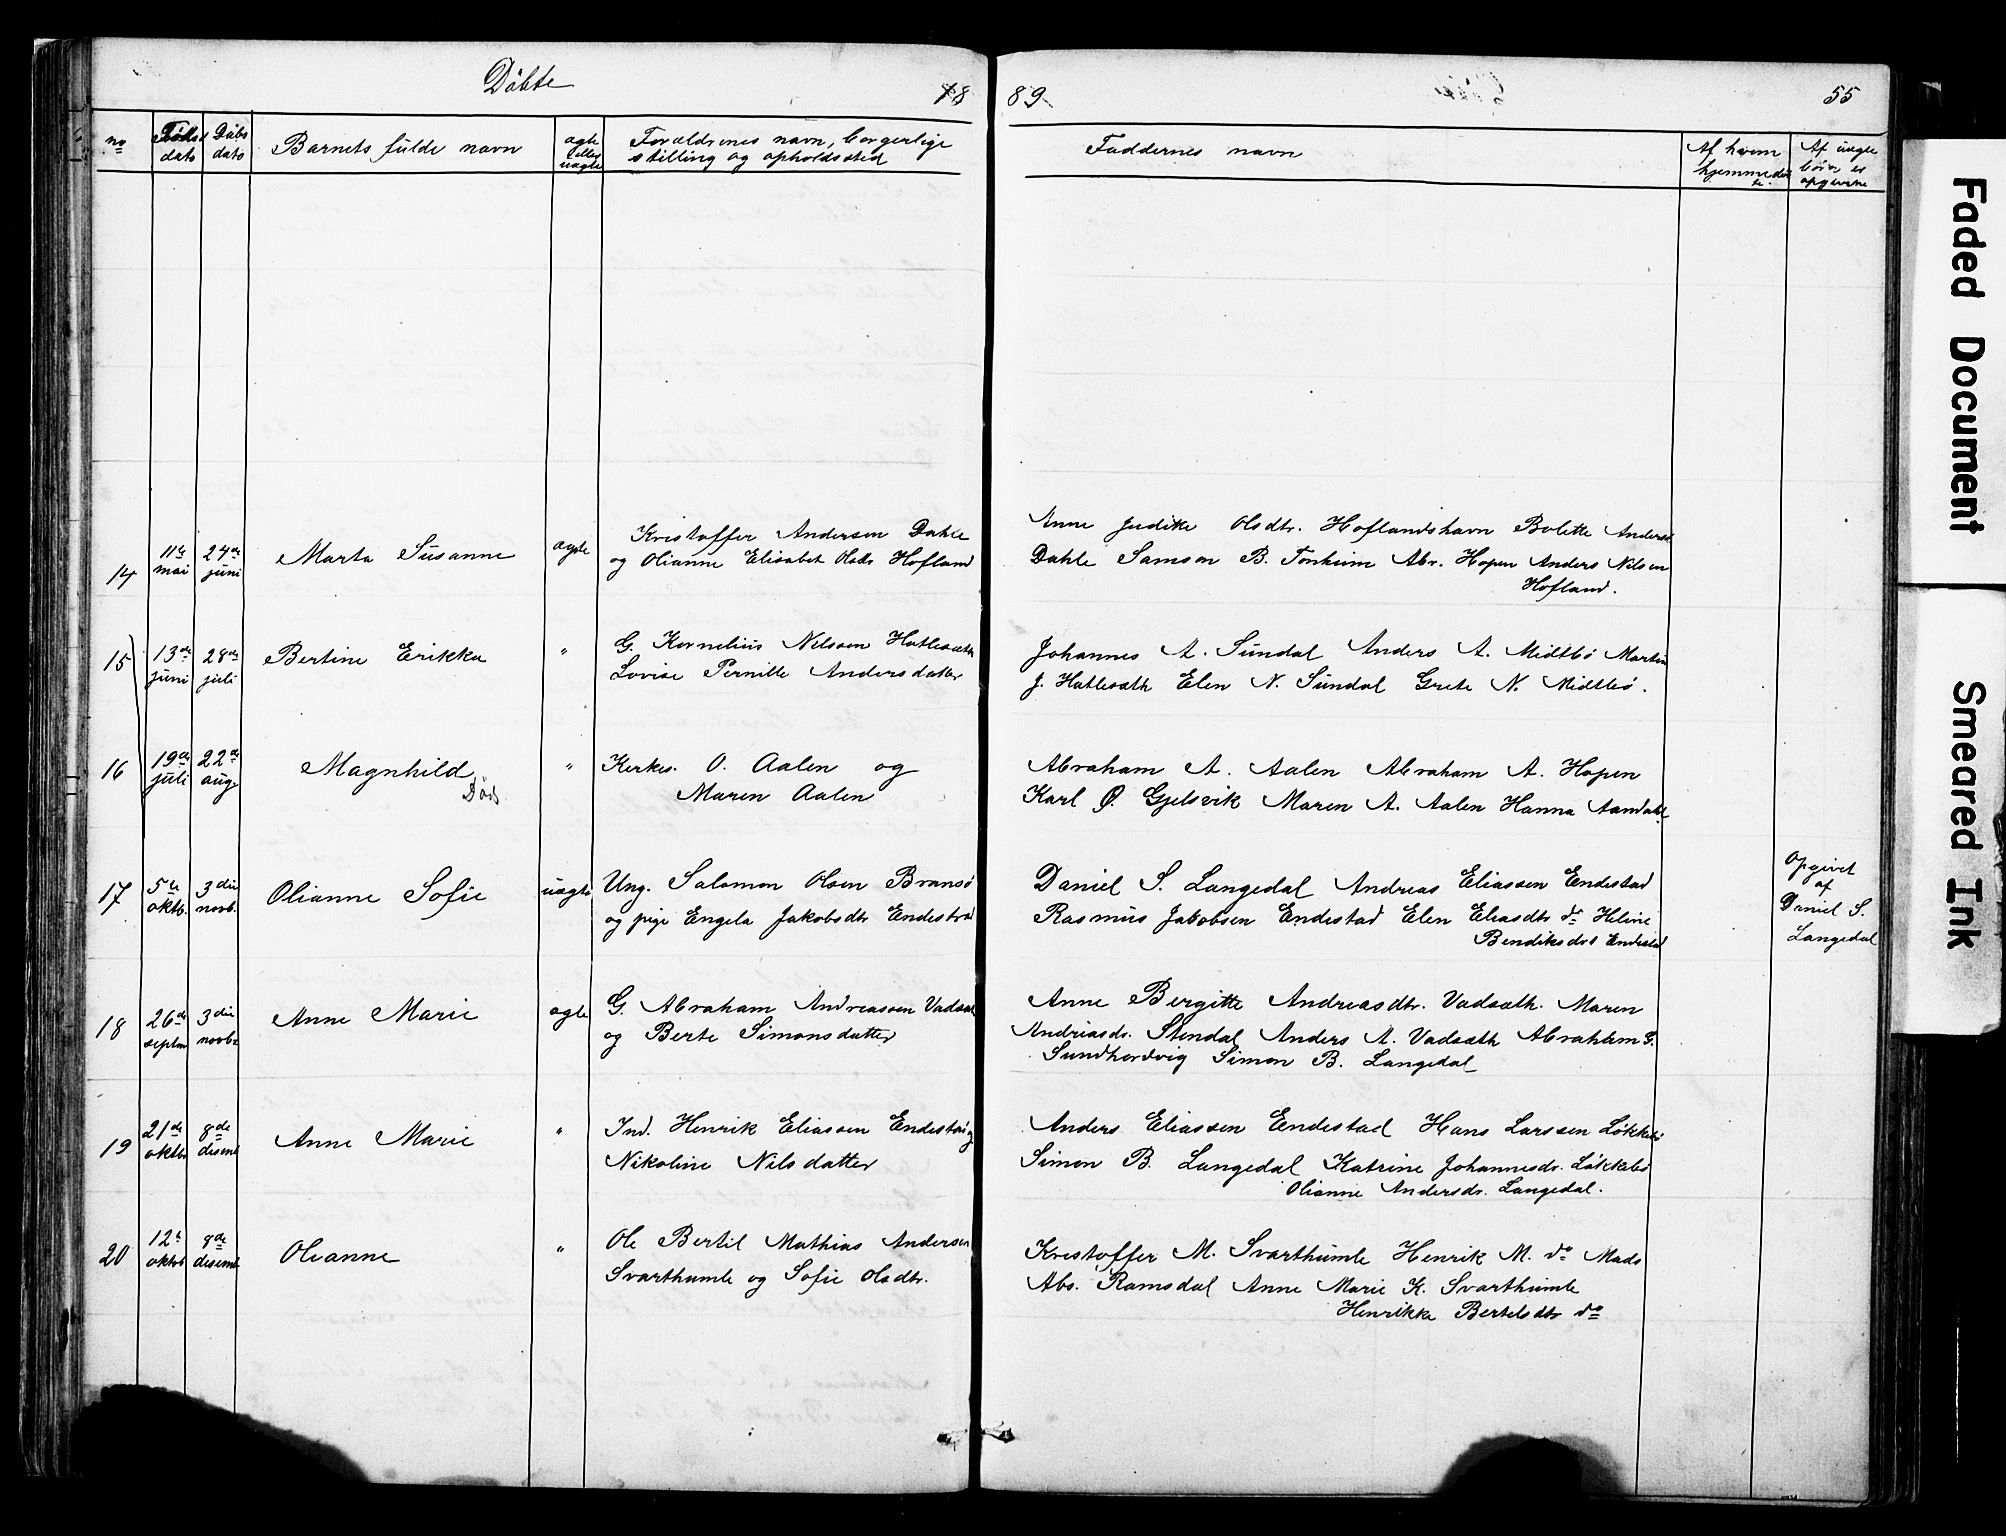 Döbte
18
89
55
no
Föds
dato
Döbs
dato
Barnets fulde navn
ægte
eller
uægte
Forældrenes navn, borgerlige
stilling og opholdssted
Faddernes navn
Af hvem
hjemmedöbt
Af uægte
börn er
opgivne
14
11te
mai
24de
juni
Marta Susanne
ægte
Kristoffer Andersen Dahle
og Olianne Elisabet Olsdr Hofland
Anne Juditte Olsdtr. Hoflandshavn Bolette Anders
Dahle Samson B. Tonheim Abr. Hopen Anders Nilsen
Hofland.
15
13de
juni
28de
juli
Bertine Erikka
"
G. Kornelius Nilsson Hatlesæth
Lovise Pernille Andersdatter
Johannes A. Sundal Anders A. Midtbö Martin
J. Hatlesæth Elen N. Sundal Grete N. Midtbö.
16
19de
juli
22de
aug.
Magnhild
Död
"
Kirkes. O. Aalen og
Maren Aalen
Abraham A. Aalen Abraham A. Hopen
Karl Ø. Gjelsvik Maren A. Aalen Hanna Aamdahl
17
5te
oktb.
3die
novb.
Olianne Sofie
uægte
Ung. Salomon Olsen Bransö
og pige Engela Jakobsdtr Endestad
Daniel S. Langedal Andreas Eliassen Endestad
Rasmus Jakobsen Endestad Elen Eliasdtr do Heline
Bendiksdtr Endestad
Opgivet
af
Daniel S.
Langedal
18
26de
septm
3die
novb.
Anne Marie
ægte
G. Abraham Andreassen Vadsæt
og Berte Simonsdatter
Anne Bergitte Andreasdtr. Vadsæth. Maren
Andreasdr. Stendal Anders A. Vadsæth Abraham G.
Sundhordvig Simon B. Langedal
19
21de
oktbr
8de
desemb
Anne Marie
"
Ind. Henrik Eliassen Endestad og
Nikoline Nilsdatter
Anders Eliassen Endestad Hans Larssen Løkkebö
Simon B. Langedal Katrine Johannesdr. Løkkebö
Olianne Andersdr. Langedal.
20
12te
oktob
8de
desemb
Olianne
"
Ole Bertil Mathias Andersen
Svarthumle og Sofie Olsdtr.
Kristoffer M. Svarthumle Henrik M. do Mads
Abs. Ramsdal Anne Marie K. Svarthumle
Henrikke Bertelsdtr do
Faded Document
Smeared Ink